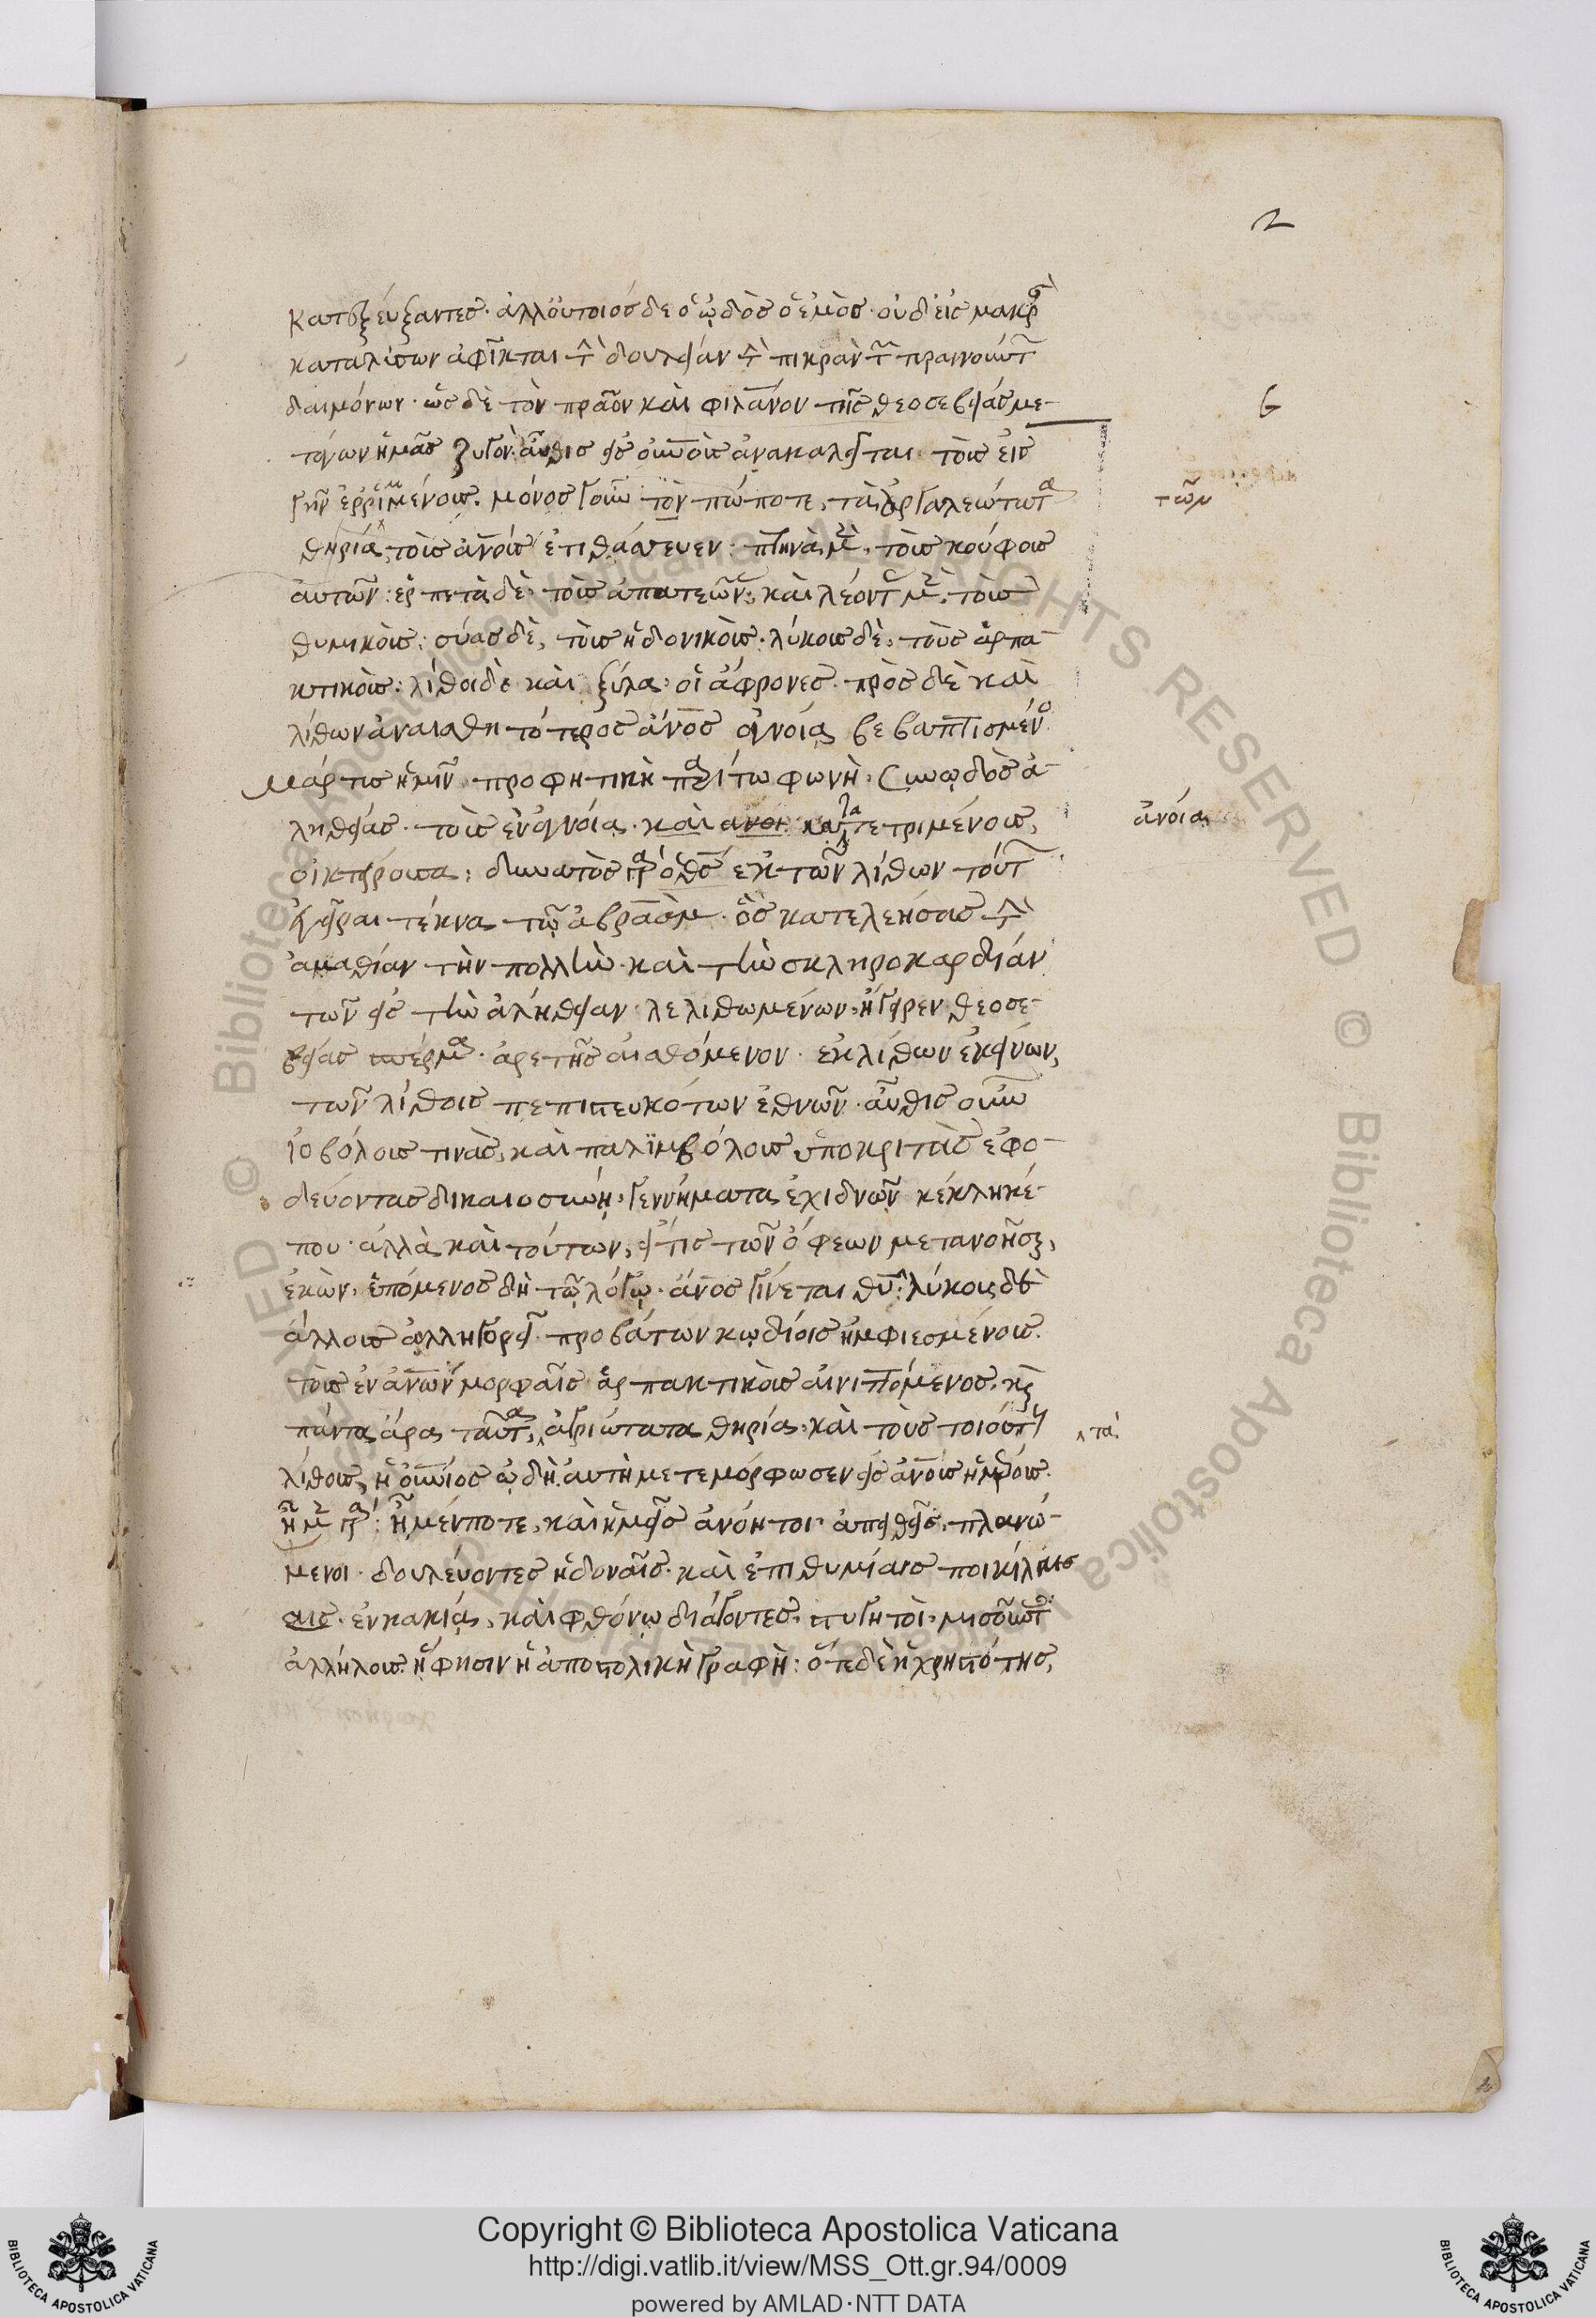 2
καταζεύξαντες· ἀλλ' οὐ τοιόσδε ὁ ὠδὸς ὁ ἐμὸς· οὐδ' εἰς μακρὰν
καταλύσων ἀφῖκται τὴν δουλείαν τὴν πικρὰν τῶν τυραννούντων
δαιμόνων· ὡς δὲ τὸν πρᾶον καὶ φιλάνον τῆς θεοσεβείας με-
6
τάγων ἡμᾶς ζυγὸν· αὖθις εἰς οὐνοὺς ἀνακαλεῖται τοὺς εἰς
γῆν ἐρριμμένους. μόνος γοῦν τὸν πώποτε, τὰ ἀργαλεώτατα
τῶν
θηρία, τοὺς ἀνους ἐτιθάσευεν· πτηνὰ μὲν, τοὺς κούφους
αὐτῶν· ἑρπετὰ δὲ τοὺς ἀπατεῶνας· καὶ λέοντας μὲν, τοὺς
θυμικοὺς· σύας δὲ, τοὺς ἡδονικοὺς· λύκους δὲ, τοὺς ἁρπα-
κτικοὺς· λίθοι δὲ καὶ ξύλα οἱ ἄφρονες· πρὸς δὲ καὶ
λίθων ἀναισθητότερος ἄνος ἀγνοίᾳ βεβαπτισμένος
μάρτυς ἡμῖν προφητικὴ παρίτω φωνὴ, συνῳδὸς ἀ-
ληθείας· τοὺς ἐν ἀγνοίᾳ καὶ ἀνοι κατατετριμμένους,
ἀνοίᾳ
οἰκτείρουσα· δυνατὸς γὰρ ὁ θς ἐκ τῶν λίθων τούτων
ἐγεῖραι τέκνα τῷ ἀβραάμ· ὃς κατελεήσας τὴν
ἀμαθίαν τὴν πολλὴν καὶ τὴν σκληροκαρδίαν
τῶν εἰς τὴν ἀλήθειαν λελιθωμένων, ἤγειρεν θεοσε-
βείας σπέρμα· ἀρετῆς αἰσθόμενον· ἐκ λίθων ἐκείνων,
τῶν λίθοις πεπιστευκότων ἐθνῶν· αὖθις οὖν
ἰοβόλους τινὰς, καὶ παλιμβόλους ὑποκριτὰς ἐφο-
δεύοντας δικαιοσύνῃ, γεννήματα ἐχιδνῶν κέκληκέ
που· ἀλλὰ καὶ τούτων, εἴ τις τῶν ὄφεων μετανοήσαι,
ἑκὼν, ἑπόμενος δὴ τῷ λόγῳ· ἄνος γίνεται θυ· λύκους δὲ
ἄλλους ἀλληγορεῖ· προβάτων κῳδίοις ἠμφιεσμένους·
τοὺς ἐν ἀνων μορφαῖς ἁρπακτικοὺς αἰνιττόμενος, καὶ
πάντα ἄρα ταῦτα, ἀγριώτατα θηρία, καὶ τοὺς τοιούτους
τὰ
λίθους, ἡ οὐνιος ᾠδὴ αὐτὴ μετεμόρφωσεν εἰς ἀνους ἡμέρους·
ἦμεν γὰρ· ἦμέν ποτε, καὶ ἡμεῖς ἀνόητοι· ἀπειθεῖς, πλανώ-
μενοι· δουλεύοντες ἡδοναῖς καὶ ἐπιθυμίαις ποικίλαις
αις· ἐν κακίᾳ, καὶ φθόνῳ διάγοντες, στυγητοὶ, μισοῦντες
ἀλλήλους· ἧ φησιν ἡ ἀποστολικὴ γραφὴ· ὅτε δὲ ἡ χρηστότης,
Copyright © Biblioteca Apostolica Vaticana
http://digi.vatlib.it/view/MSS_Ott.gr.94/0009
powered by AMLAD·NTT DATA